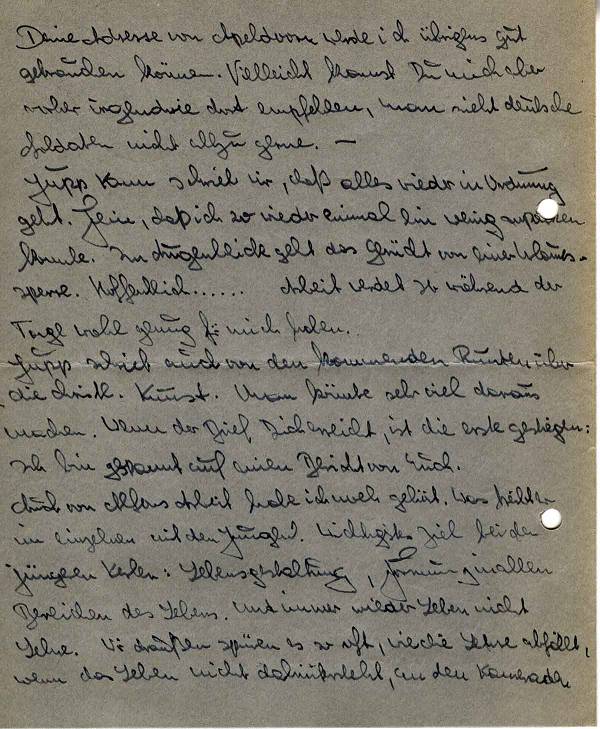 Deine Adresse von Apeldoorn werde ich übrigens gut
gebrauchen können. Vielleicht kannst Du mich aber
vorher irgendwie dort empfehlen, man sieht deutsche
Soldaten nicht allzu gerne. —
Jupp Kamm schrieb mir, daß alles wieder in Ordnung
geht. Fein, daß ich so wieder einmal ein wenig anpacken
konnte. Im Augenblick geht das Gerücht von einer Urlaubs-
sperre. Hoffentlich...... Arbeit werdet Ihr während der
Tage wohl genug für mich haben.
Jupp schrieb auch von den kommenden Runden über
die christl. Kunst. Man könnte sehr viel daraus
machen. Wenn der Brief Dich erreicht, ist die erste gestiegen:
Ich bin gespannt auf einen Bericht von Euch.
Auch von Alfons Arbeit habe ich noch gehört. Was treibt Ihr
im einzelnen mit den Jungen? Wichtigstes Ziel bei den
jüngeren Kerlen: Lebensgestaltung, Formung in allen
Bereichen des Lebens. Und immer wieder Leben nicht
Lehre. Wir draußen spüren es so oft, wie die Lehre abfällt,
wenn das Leben nicht dahintersteht, an den Kameraden